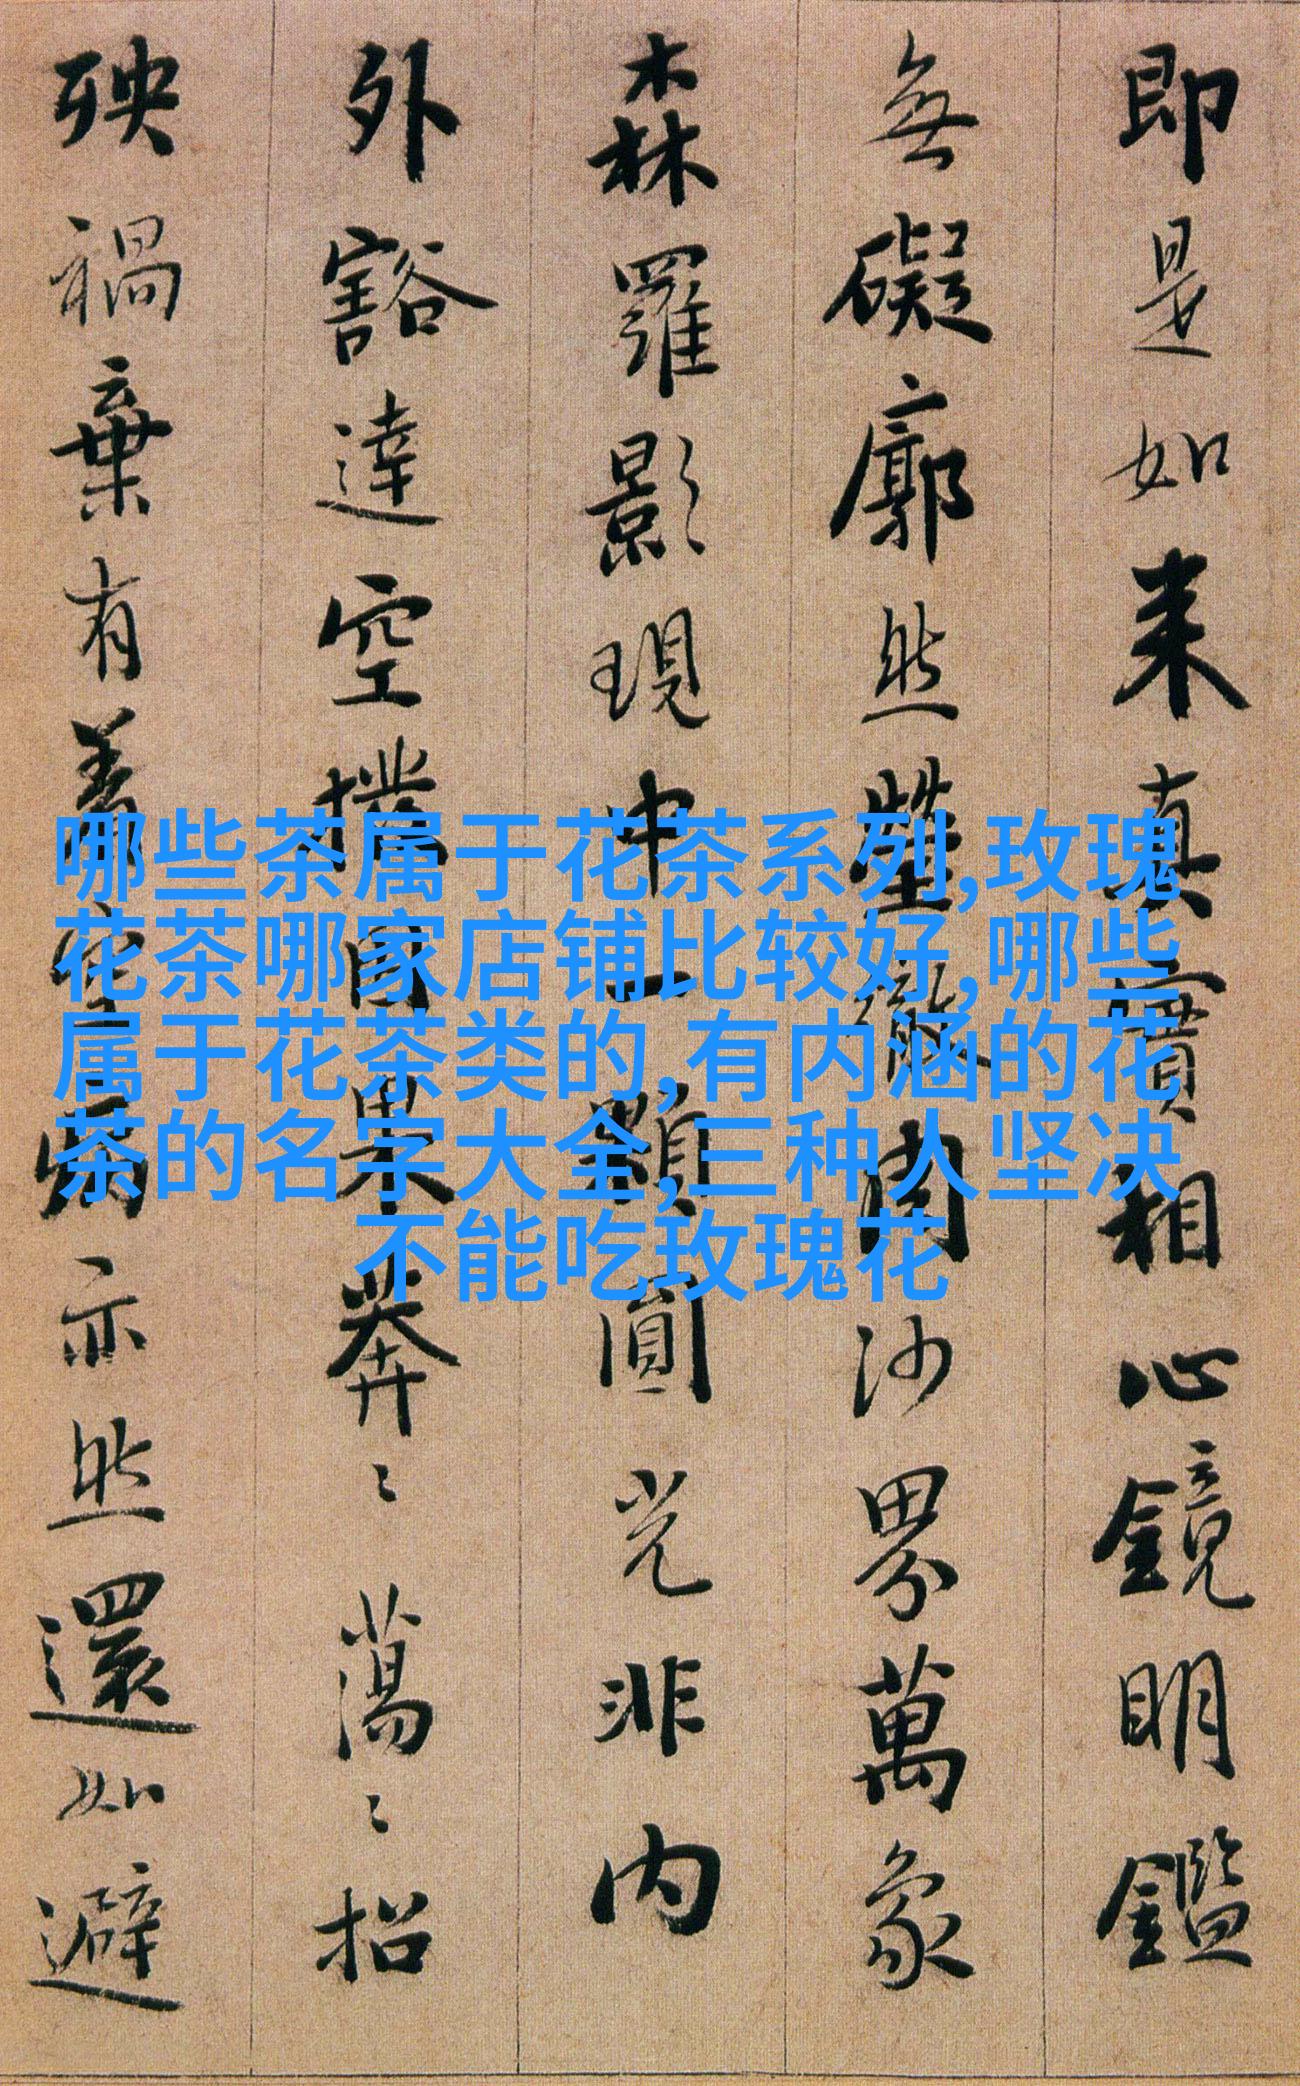 即是如来真實相心鏡明鑑
無礙廓然瑩徹周沙界萬象
森羅影現中一顆圓光非内
外豁達空撥因果莽〻蕩〻招
殃禍棄有著空病亦然還如避
哪些茶属于花茶系列,玫瑰
花茶哪家店铺比较好,哪些
属于花茶类的,有内涵的花
茶的名字大全,三种人坚决
不能吃玫瑰花